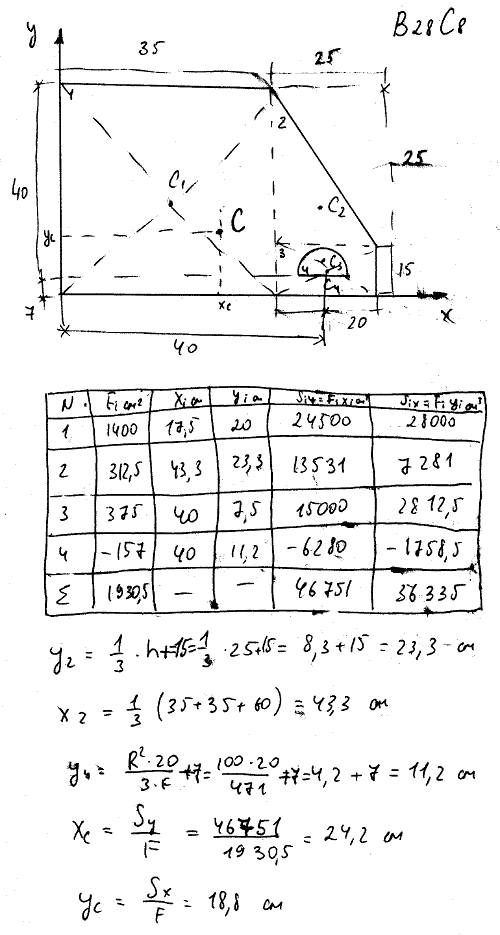 B28C8
y
35
25
1
2
25
40
C₁
C
C₂
yc
3
C₃
4
C₄
15
7
xc
20
x
40
N Fi см² Xi см yi см Siy=Fi xi см³ Six=Fi yi см³
1 1400 17,5 20 24500 28000
2 312,5 43,3 23,3 13531 7281
3 375 40 7,5 15000 2812,5
4 -157 40 11,2 -6280 -1758,5
Σ 1930,5 — — 46751 36335
y₂ = 1/3 · h+15 = 1/3 · 25+15 = 8,3+15 = 23,3 см
x₂ = 1/3 (35+35+60) = 43,3 см
y₄ = R²·20/3·F +7 = 100·20/471 +7 = 4,2 + 7 = 11,2 см
Xc = Sy/F = 46751/1930,5 = 24,2 см
yc = Sx/F = 18,8 см